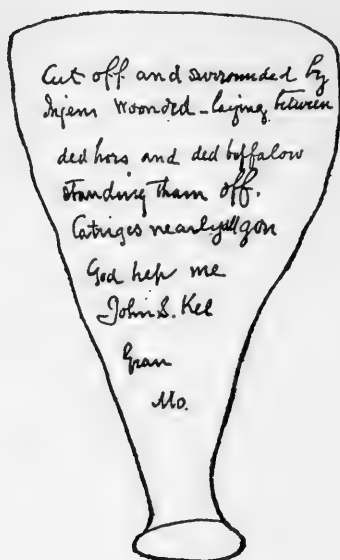 Cut off and surrounded by
Injens Woonded - laying between
ded hors and ded buffalow
standing Tham off.
Catriges nearly all gon
God help me
John S. Kel
Mo.